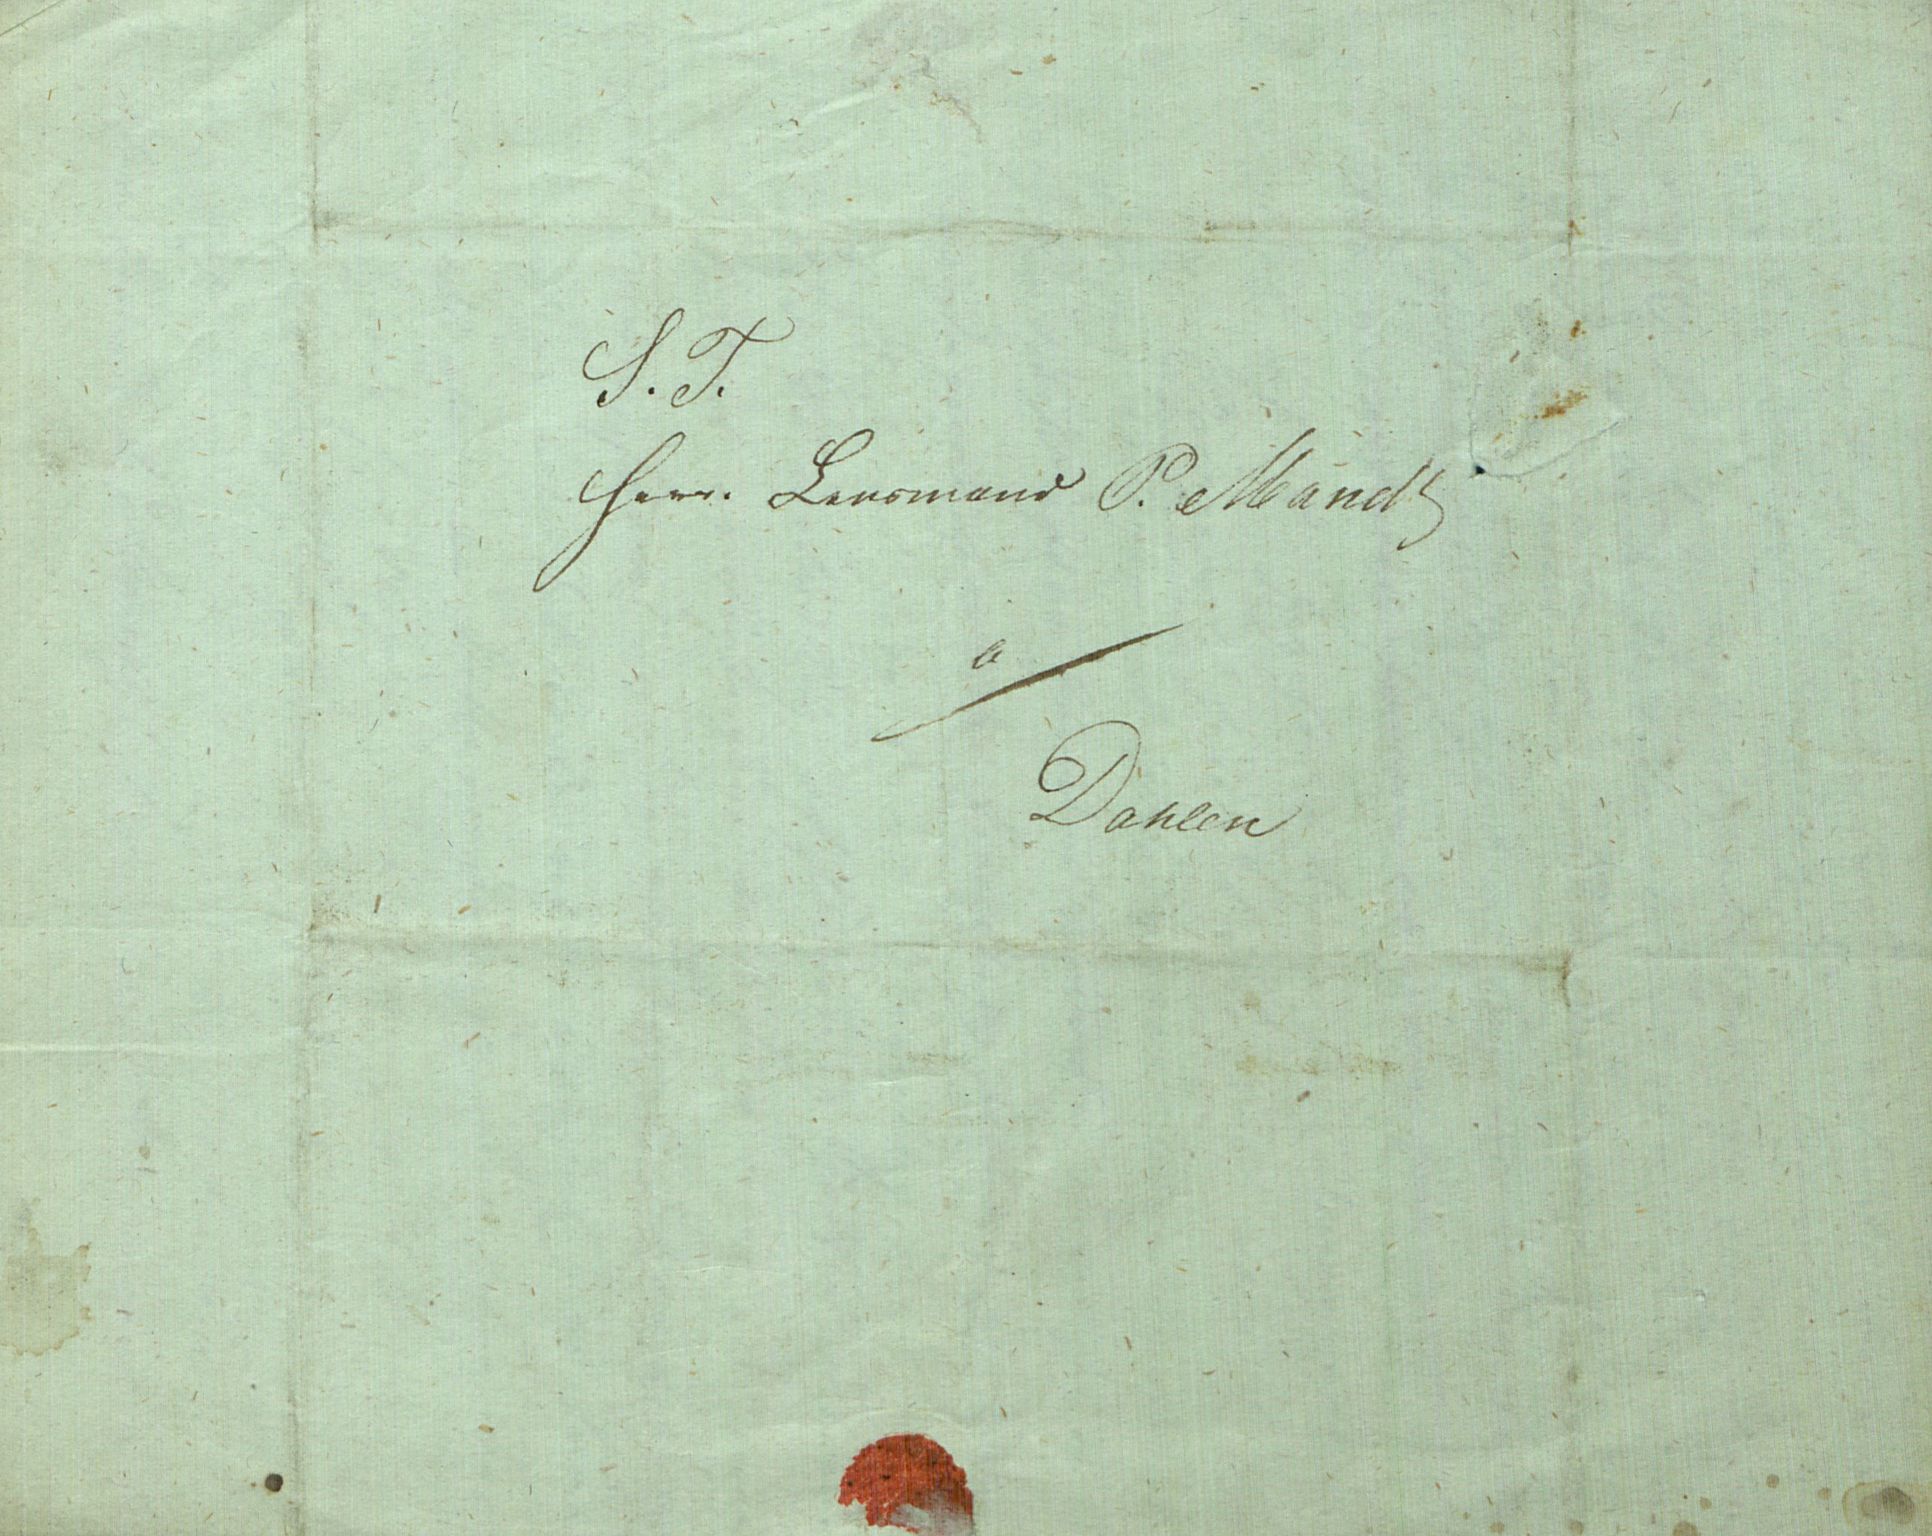 S. T.
Herr. Lensmand P. Mandt
a
Dahlen